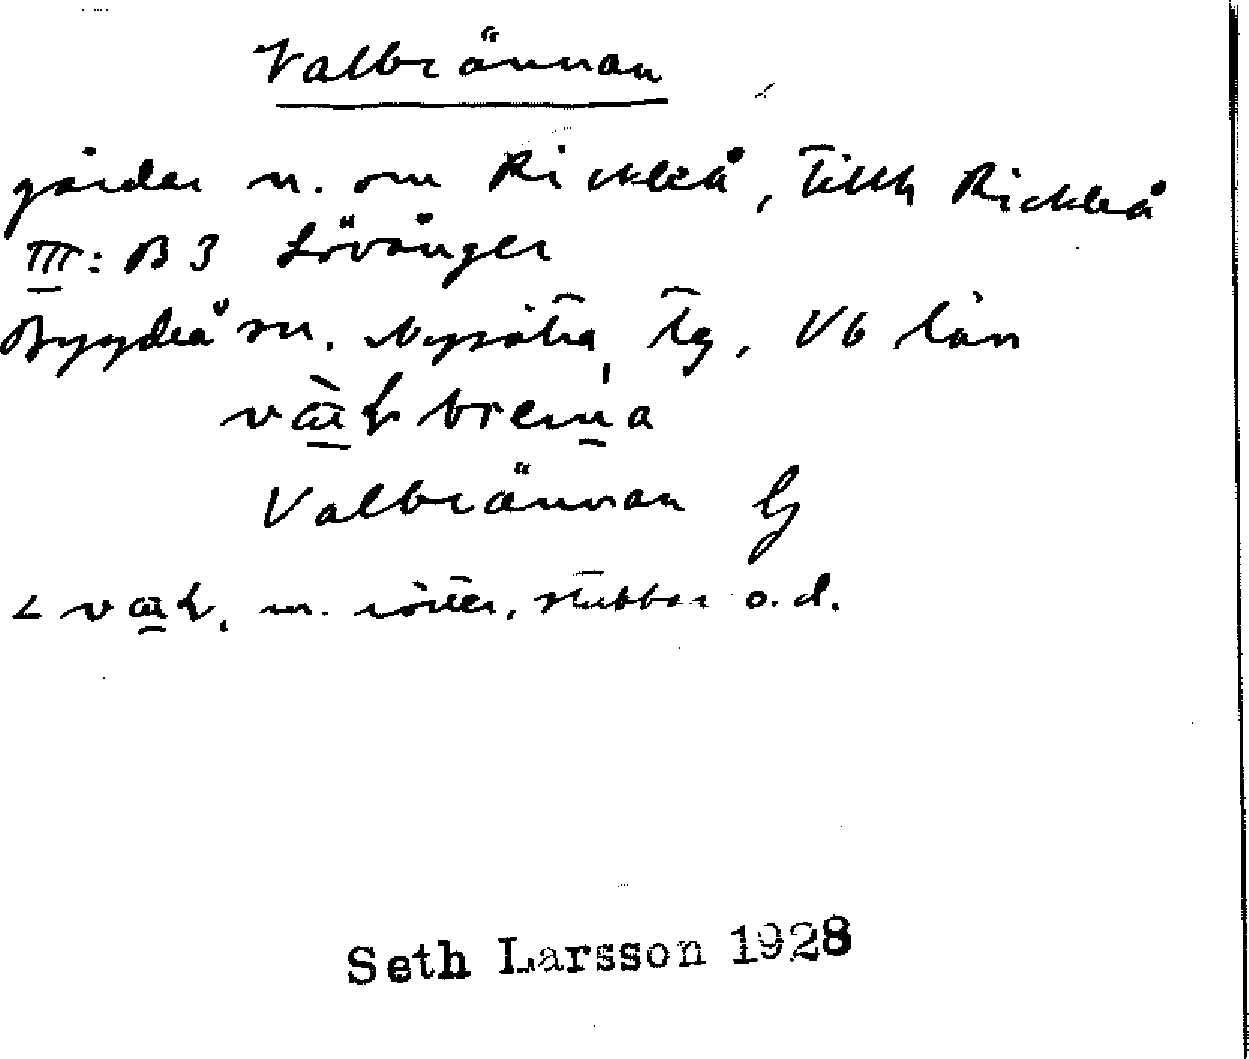 Valbrännan
gårdar n. om Rickleå, Tillh Rickleå
III: B 3 Lövånger
Bygdeå sn. Nysätra Tg, Vb län
Valbrännan G
< m. rötter, stubbar o.d.
Seth Larsson 1928